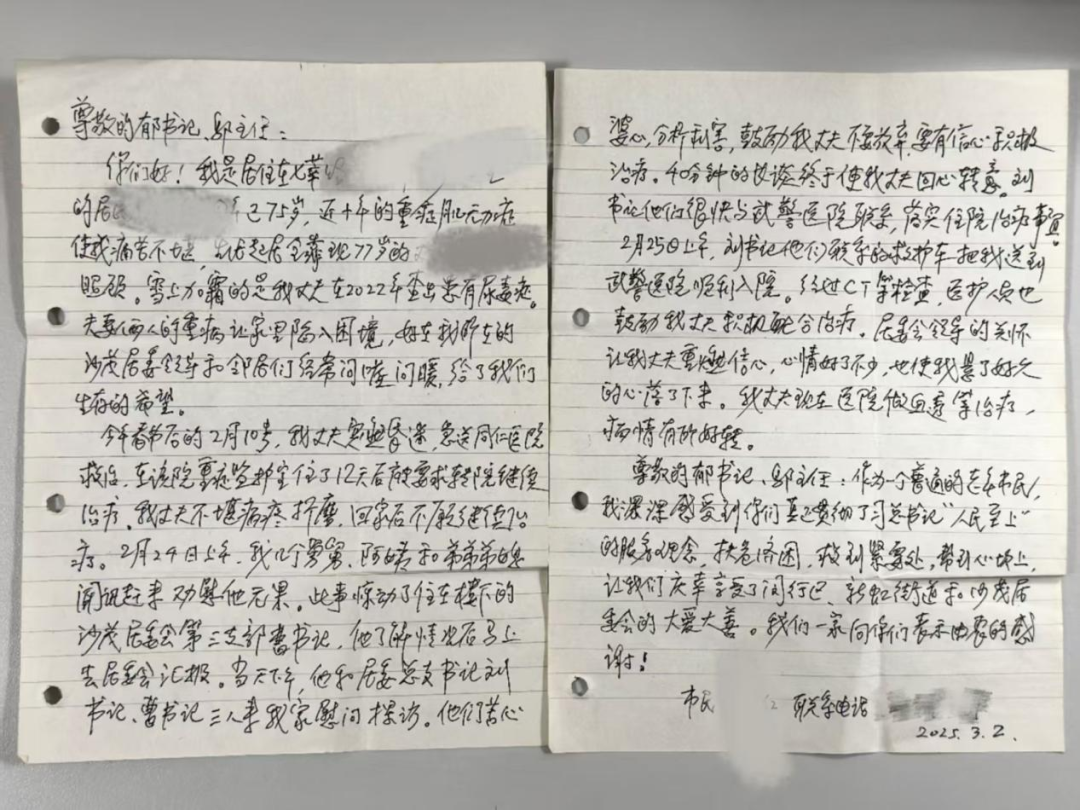 尊敬的郁书记、邬主任：
你们好！我是居住在七莘
的居 已75岁，近十年的重症肌无力症
使我痛苦不堪，生活起居全靠现77岁的
照顾。雪上加霜的是我丈夫在2022年查出患有尿毒症。
夫妻俩人的重病让家里陷入困境，好在我所在的
沙茂居委领导和邻居们经常问嘘问暖，给了我们
生存的希望。
今年春节后的2月10号，我丈夫突然昏迷，急送同仁医院
救治，在该院重症监护室住了12天后被要求转院继续
治疗。我丈夫不堪病疼折磨，回家后不愿继续治
疗。2月24日上午，我几个舅舅、阿姨和弟弟弟媳
闻讯赶来劝慰他无果。此事惊动了住在楼下的
沙茂居委会第三支部曹书记，他了解情况后马上
去居委会汇报。当天下午，他和居委总支书记刘
书记、曹书记三人来我家慰问探访。他们苦心
婆心，分析利害，鼓励我丈夫不要放弃，要有信心积极
治疗。40分钟的交谈终于使我丈夫回心转意。刘
书记他们很快与武警医院联系，落实住院治疗事宜。
2月25日上午，刘书记他们联系的救护车把我送到
武警医院顺利入院。经过CT等检查，医护人员也
鼓励我丈夫积极配合治疗。居委会领导的关怀
让我丈夫重燃信心，心情好了不少，也使我悬了好久
的心落了下来。我丈夫现在医院做血透等治疗，
病情有所好转。
尊敬的郁书记、邬主任：作为一个普通的老年市民，
我深深感受到你们真正贯彻了习总书记“人民至上”
的服务理念，扶危济困，救到紧要处，帮到心坎上，
让我们庆幸享受了闵行区、新虹街道和沙茂居
委会的大爱大善。我们一家向你们表示由衷的感
谢！
市民 联系电话
2025.3.2.